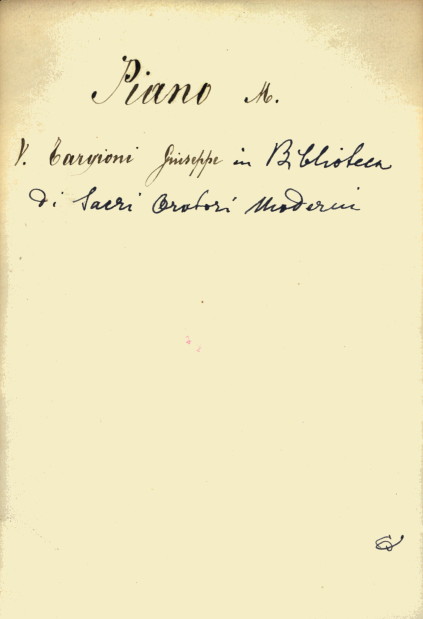 Piano M.
V. Targioni Giuseppe in Biblioteca
di Sacri Oratori Moderni